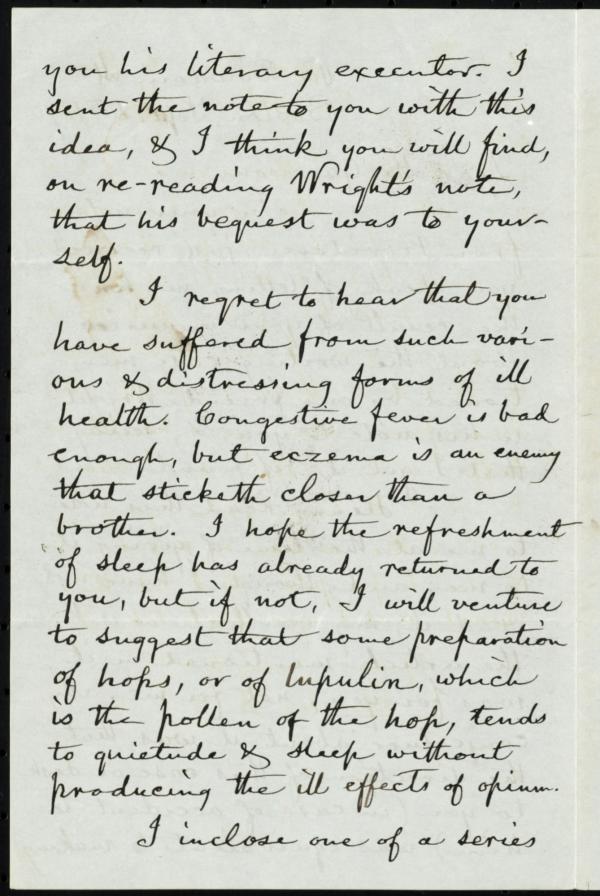 you his literary executor. I
sent the note to you with this
idea, & I think you will find,
on re-reading Wright's note,
that his bequest was to your-
self.
I regret to hear that you
have suffered from such vari-
ous & distressing forms of ill
health. Congestive fever is bad
enough, but eczema is an enemy
that sticketh closer than a
brother. I hope the refreshment
of sleep has already returned to
you, but if not, I will venture
to suggest that some preparation
of hops, or of lupulin, which
is the pollen of the hop, tends
to quietude & sleep without
producing the ill effects of opium.
I inclose one of a series